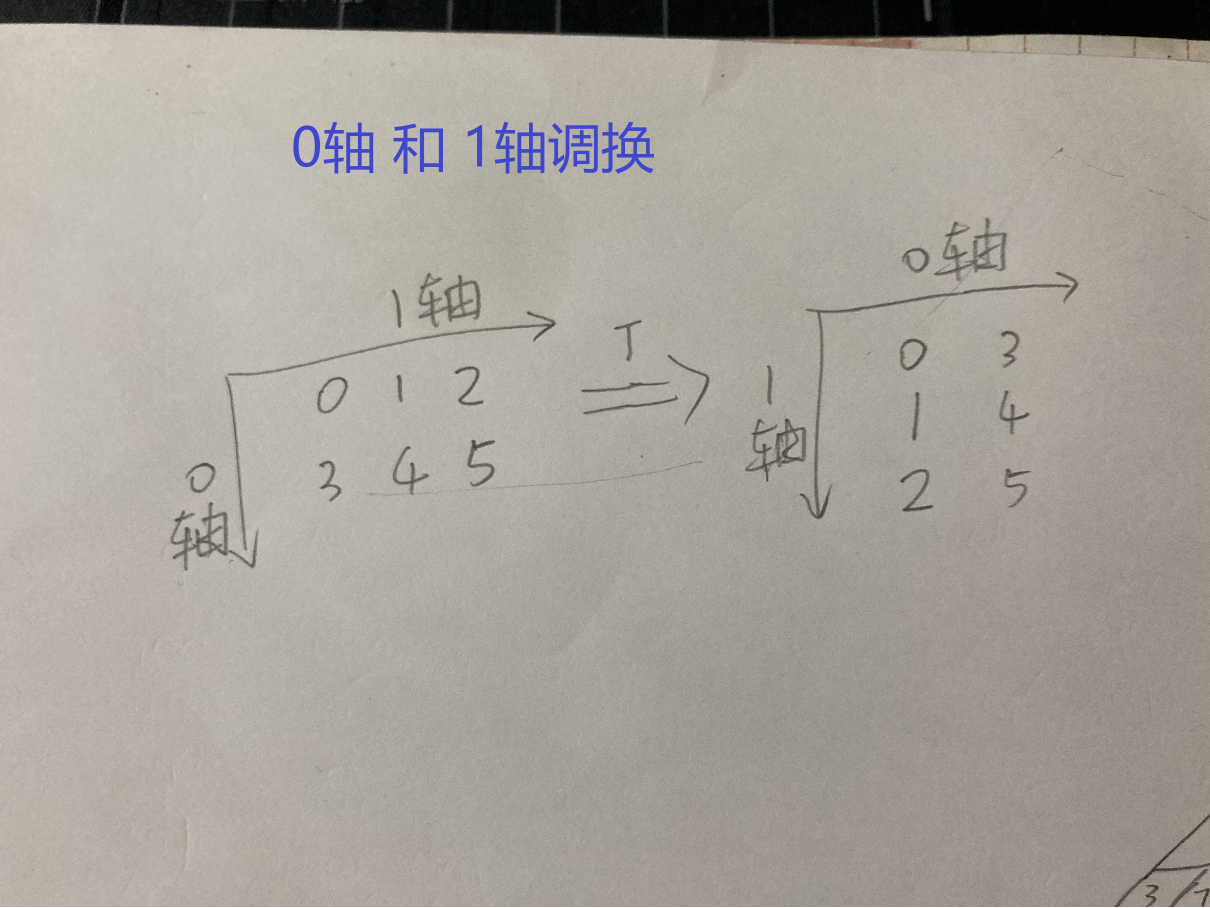 0轴 和 1轴调换
1轴
0 1 2
3 4 5
0
轴
T
0轴
1
轴
0 3
1 4
2 5
3